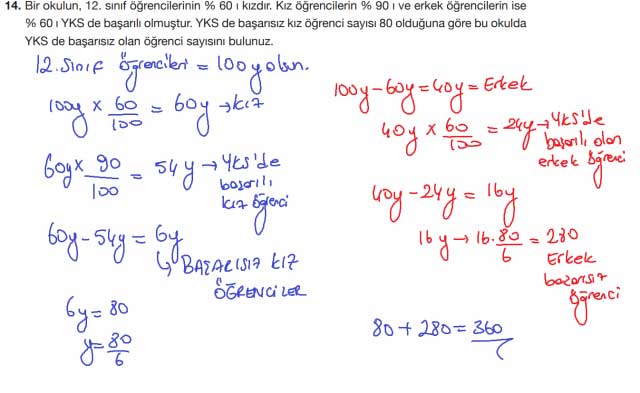 14. Bir okulun, 12. sınıf öğrencilerinin % 60 ı kızdır. Kız öğrencilerin % 90 ı ve erkek öğrencilerin ise
% 60 ı YKS de başarılı olmuştur. YKS de başarısız kız öğrenci sayısı 80 olduğuna göre bu okulda
YKS de başarısız olan öğrenci sayısını bulunuz.
12. sınıf öğrencileri = 100y olsun.
100y x 60/100 = 60y → kız
60y x 90/100 = 54y → YKS'de
başarılı
kız öğrenci
60y - 54y = 6y
↳ BAŞARISIZ KIZ
ÖĞRENCİLER
6y = 80
y = 80/6
100y - 60y = 40y = Erkek
40y x 60/100 = 24y → YKS'de
başarılı olan
erkek öğrenci
40y - 24y = 16y
16y → 16. 80/6 = 280
Erkek
başarısız
öğrenci
80 + 280 = 360